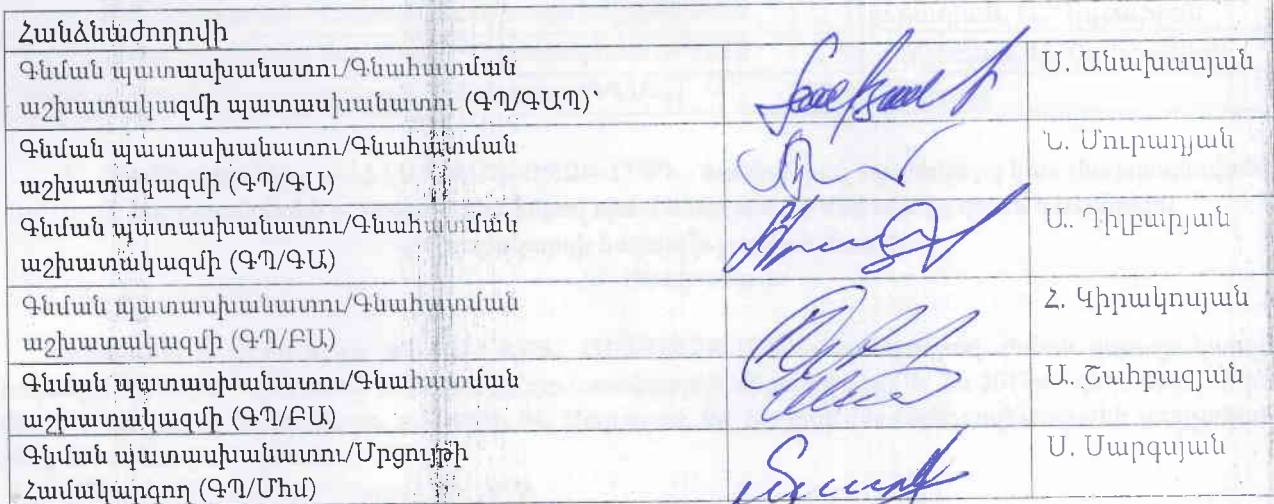 Հանձնաժողովի
Գնման պատասխանատու/Գնահատման
աշխատակազմի պատասխանատու (ԳՊ/ԳԱՊ)՝
Ս. Անախասյան
Գնման պատասխանատու/Գնահատման
աշխատակազմի (ԳՊ/ԳԱ)
Ն. Մուրադյան
Գնման պատասխանատու/Գնահատման
աշխատակազմի (ԳՊ/ԳԱ)
Ս.. Դիլբարյան
Գնման պատասխանատու/Գնահատման
աշխատակազմի (ԳՊ/ԲԱ)
Հ. Կիրակոսյան
Գնման պատասխանատու/Գնահատման
աշխատակազմի (ԳՊ/ԲԱ)
Ա. Շահբազյան
Գնման պատասխանատու/Մրցույթի
Համակարգող (ԳՊ/Միմ)
Ս. Սարգսյան